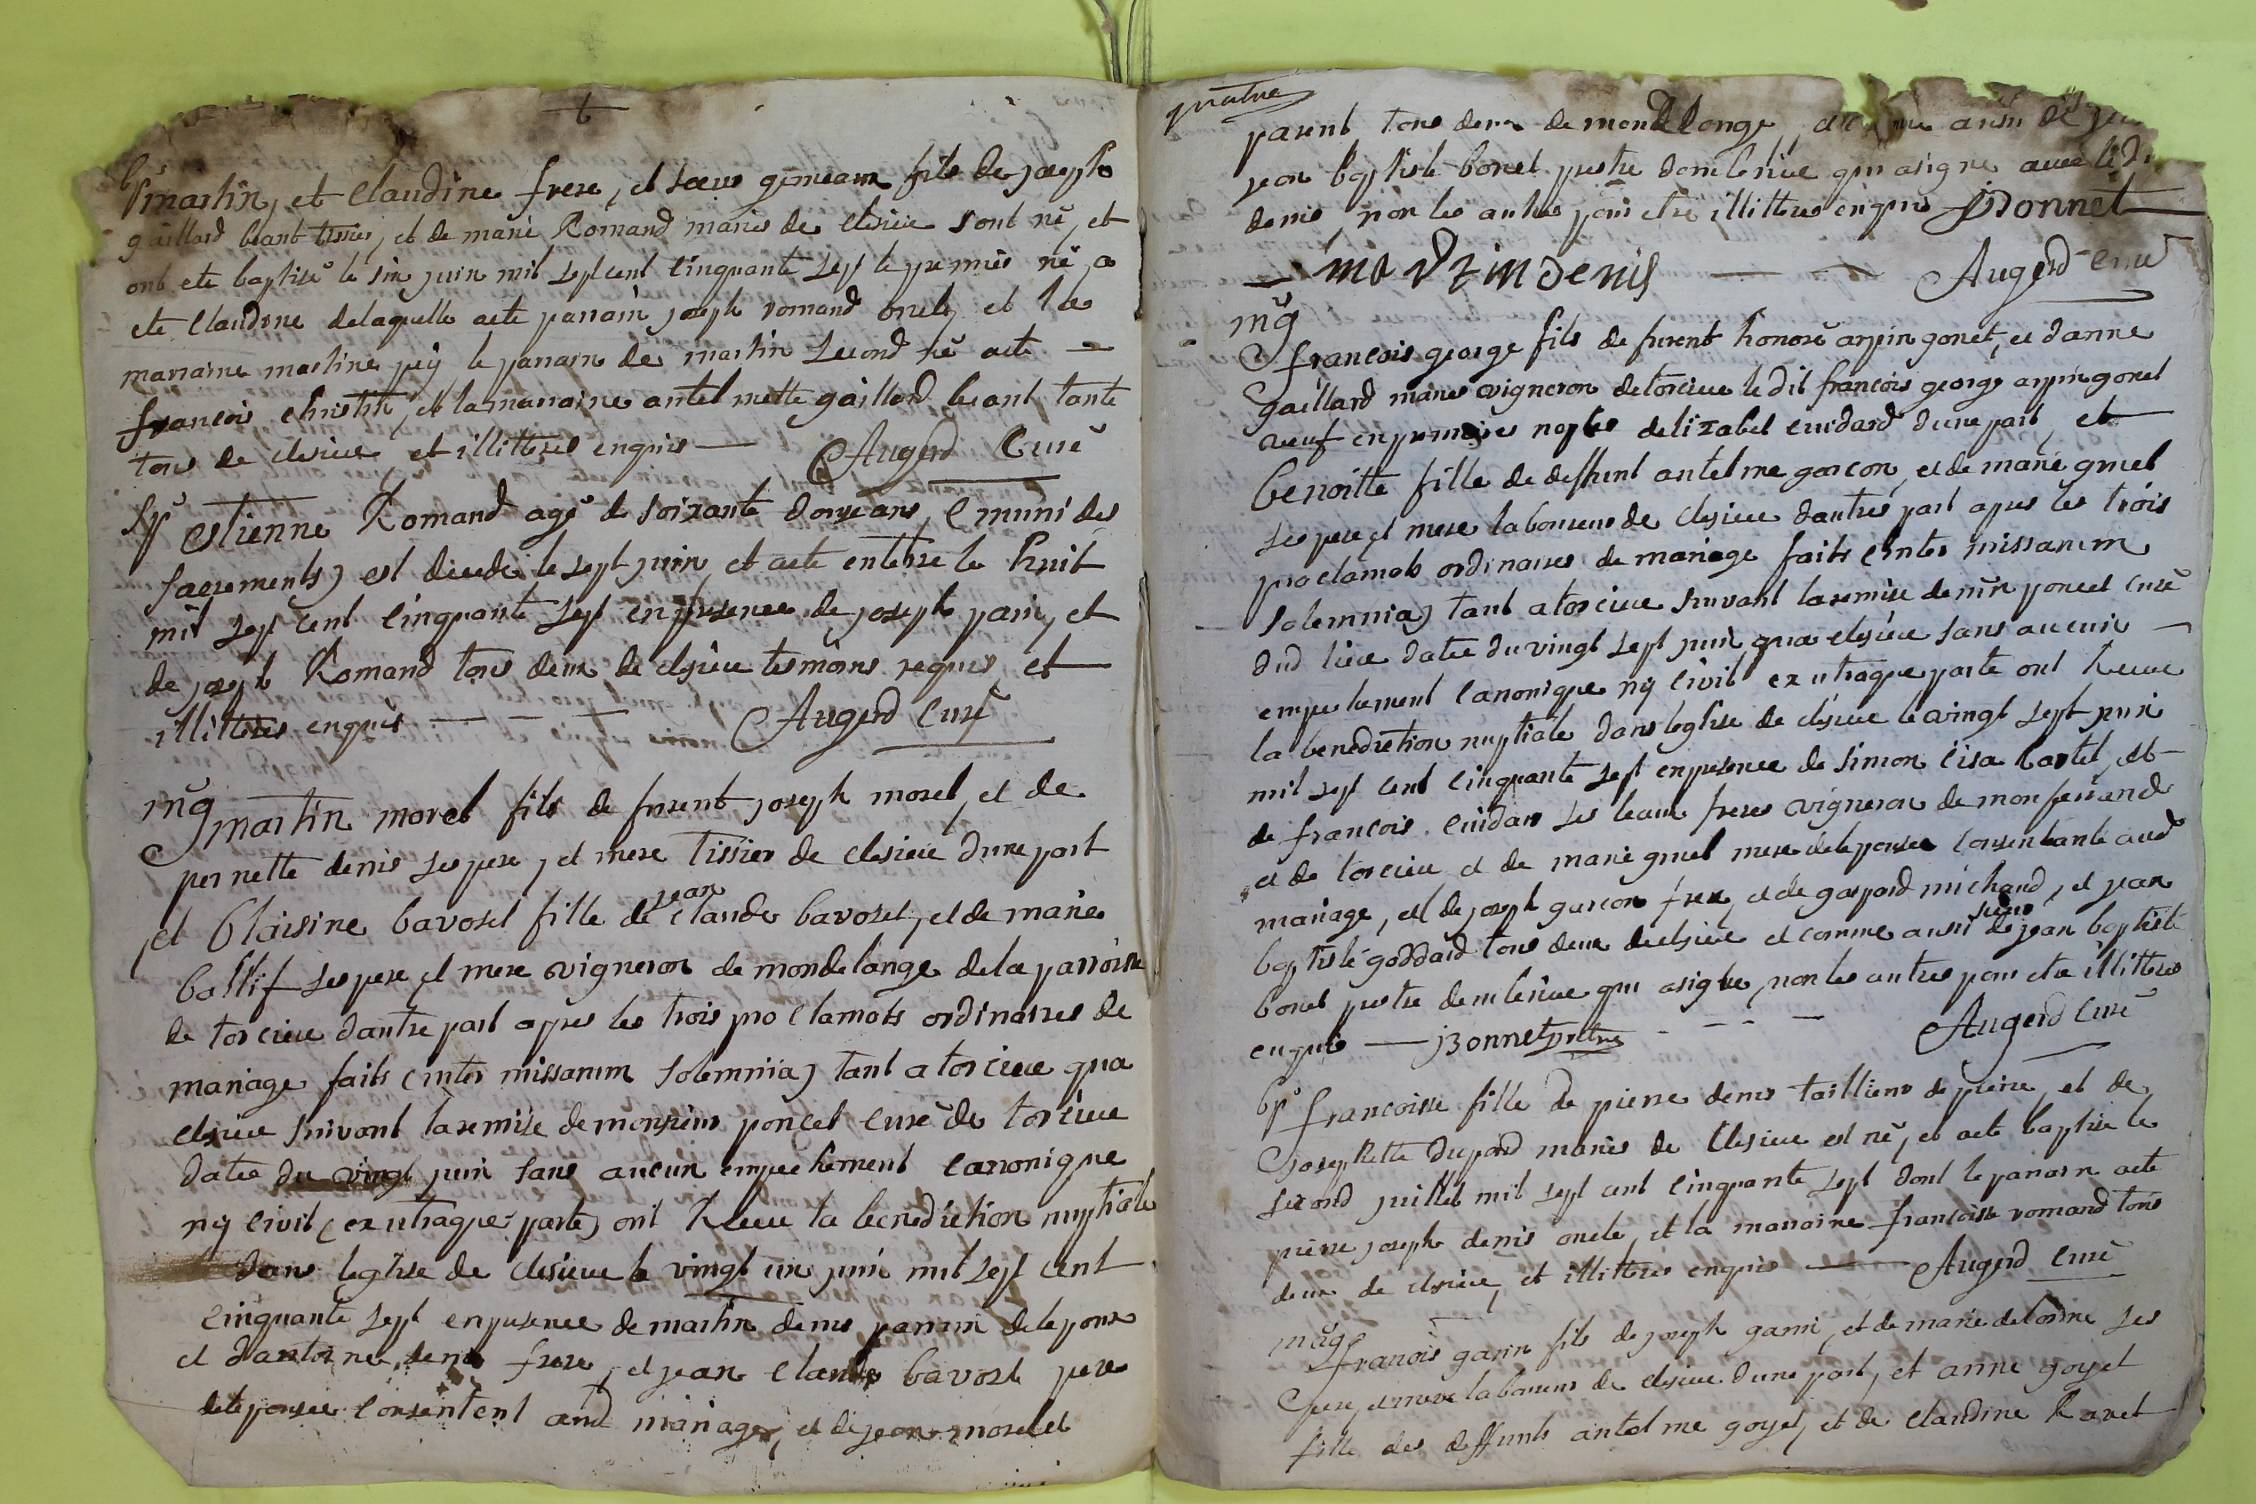 bp martin, et Claudine frere, et soeur gemeaux fils de joseph
gaillard beant tissier, et de marie Romand mariés de cleisieu sont né, et
ont ete baptisé le six juin mil sept cent cinquante sept le premier né a
ete Claudine delaquelle aete parrain joseph romand oncle, et la
marraine martine pey le parrain de martin second né aete
francois christin, et lamarraine antelmette gaillard beant tante
tous de cleisieu et illitterés enquis — Augerd Curé
Sp estienne Romand agé de soixante douze ans, (muni des
sacrements) est decedé le sept juin, et aete enterré le huit
mil sept cent cinquante sept en presence de joseph parin, et
de joseph Romand tous deux de cleisieu tesmoins requis, et
illitterés enquis — — — Augerd curé
mg martin morel fils de furent joseph morel, et de
pernette denis ses pere, et mere tissier de cleisieu dune part
et blaisine bavosel fille de jean claude bavosel, et de marie
ballif ses pere, et mere vigneron de mondelange dela parroisse
de torcieu dautre part apres les trois proclamats ordinaires de
mariage faits (inter missarum solemnia) tant a torcieu qua
cleisieu suivant laremise demonsieur poncet curé de torcieu
datée du vingt juin sans aucun empechement canonique
ny civil (ex utraque parte) ont Receu la benediction nuptiale
dans leglise de cleisieu le vingt un juin mil sept cent
cinquante sept enpresence demartin denis parrain delepoux
et dantoine denis frere, et jean claude bavosel pere
delepousée consentent aud mariage, et de jean morel et
quatre
parent tous deux de mondelonge, et comme aussi de
jean baptiste bonet prestre domcilié qui asigné avec le d
denis, non les autres pour etre illitterés enquis JBonnet
— martin denis — — Augerd curé
mg
francois george fils de furent honoré arpin gonet, et danne
gaillard mariés vigneron detorcieu le dit francois george arpin gonet
veuf enpremieres nopces delizabel cuidard dune part, et
benoitte fille de deffunt antelme garcon, et de marie gruel
ses pere et mere laboureur de cleisieu dautres part apres les trois
proclamats ordinaires de mariage faits (inter missarum
solemnia) tant atorcieu suivant laremise demr poncet curé
dud lieu datée du vingt sept juin qua cleisieu sans aucuin —
empechement canonique ny civil ex utraque parte ont Receu
la benediction nuptiale dans leglise de cleisieu le vingt sept juin
mil sept cent cinquante sept enpresence de simon cisa Cartel, et
de francois cuidars ses beaux freres vigneron de monferrand
et de torcieu et de marie gruel mere delepousée consentante aud
mariage, et de joseph garcon frere, et de gaspard michaud, et jean
baptiste goddard tous deux decleisieu et comme aussi sieur de jean baptiste
bonet prestre domcilié qui asigné, non les autres pour etre illitterés
enquis — JBonnet prttre — — — Augerd Curé
bp francoise fille de pierre denis taillieur de pierre, et de
josephtte dupard mariés de Cleisieu est né, et aete baptisée le
second juillet mil sept cent cinquante sept dont le parrain aete
pierre joseph denis oncle, et la marraine francoise romand tous
deux de cleisieu, et illitterés enquis — Augerd curé
mag francois garin fils de joseph garin, et de marie delorme ses
pere, et mere laboureur de cleisieu dune part, et anne goyet
fille des deffunts antelme goyet, et de claudine Ravet